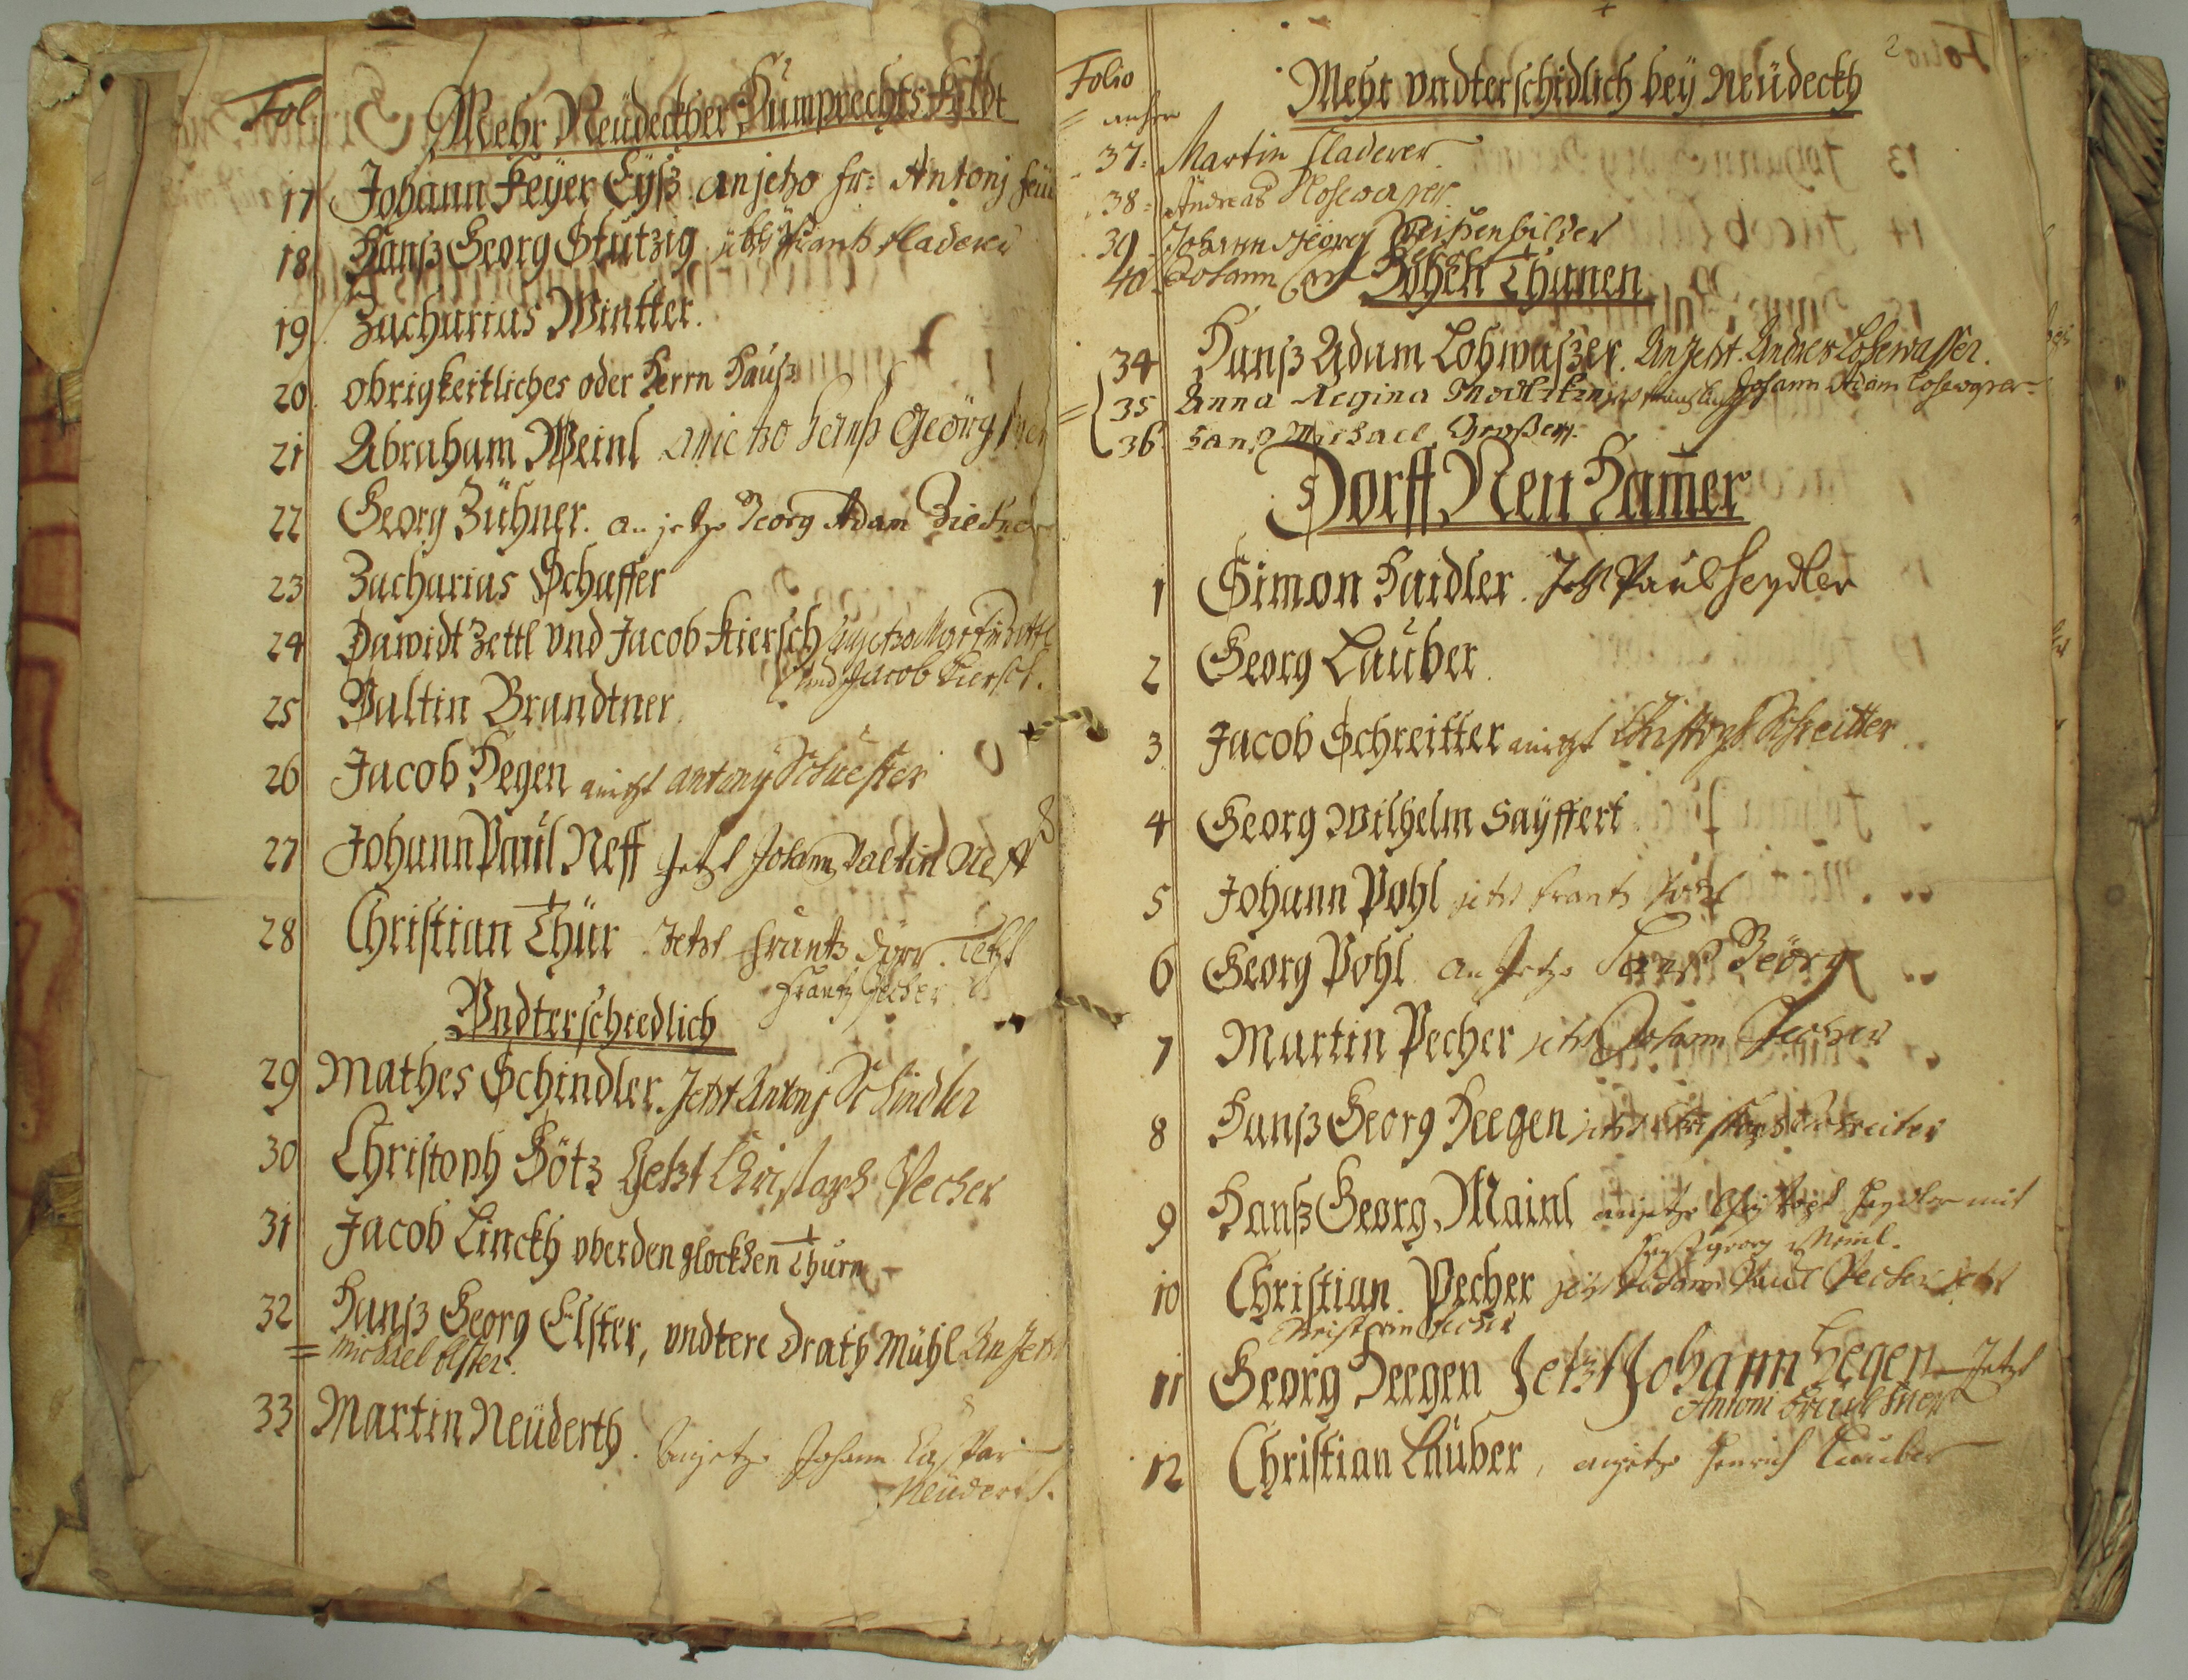 Fol:
Mehr Neüdeckher Rumprechts Feldt
17 Johann Feyer Eyß anjetzo Fr: Antonj
18 Hanß Georg Stutzig jetzt Frantz Fladerer
19 Zacharias Wintter.
20 obrigkeitliches oder Herrn Hauß
21 Abraham Meinl anietzo Hanß Geörg
22 Georg Zühner. anjetzo Georg Adam Ziehner
23 Zacharias Schaffer
24 Dawidt Zettl vnd Jacob Kiersch anjetzo Martin Zettl
und Jacob Kiersch.
25 Valtin Brandtner.
26 Jacob Hegen anietzt antonÿ Schuester
27 Johann Paul Neff Jetzt Johann Valtin Neff
28 Christian Thür Jetzt Frantz Dörr. Jetzt
Frantz Pecher
Vndterschiedlich
29 Mathes Schindler. Jetzt Antonj Schindler
30 Christoph Götz Jetzt Christoph Pecher
31 Jacob Linckh ober den glockhen Thurn
32 Hanß Georg Elster, vndtere Drath Mühl An Jetzt
= Michael Elster.
33 Martin Neüderth. Anjetzo Johann Caspar
Neüderth.
Folio
2
Mehr vndterschidlich bey Neüdeckh
37: Martin Fladerer
38: Andreas Losewasser.
39. Johann Georg Reissenbilder
40. Johann
Hohen Thanen
34 Hanß Adam Lohwaßer. An Jetzt. Andres Losewasser.
35 Anna Regina Johann Adam Losewasser
36 Hanß Michael Großer.
Dorff Neu Hamer
1 Simon Haidler. Jetzt Paul Heydler
2 Georg Lauber.
3 Jacob Schreitter anietzt Christoph Schreitter
4 Georg Wilhelm Saÿffert
5 Johann Pohl jetzt Frantz Pohl
6 Georg Pohl anJetzo Hanß Geörg
7 Martin Pecher jetzt Johann Pecher
8 Hanß Georg Heegen jetzt Christoph Schreiter
9 Hanß Georg Mainl anjetzo Christoph Heydler mit
Hanß Georg Meinl.
10 Christian Pecher jetzt Johann Paul Pecher jetzt
Christian Pecher
11 Georg Heegen Jetzt Johann Hegen Jetzt
Antoni
12 Christian Lauber, anjetzo Henrich Lauber